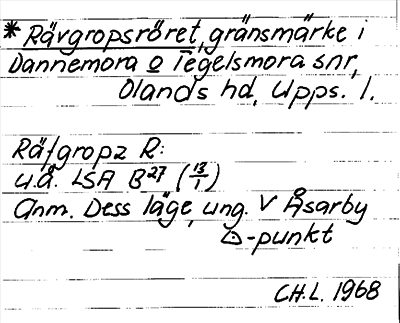 * Rävgropsröret, gränsmärke i
Dannemora o Tegelsmora snr,
Olands hd, Upps. l.
Räfgropz R:
u.å. LSA B27 (13/1)
Anm. Dess läge, ung. V Åsarby
-punkt
CH.L. 1968